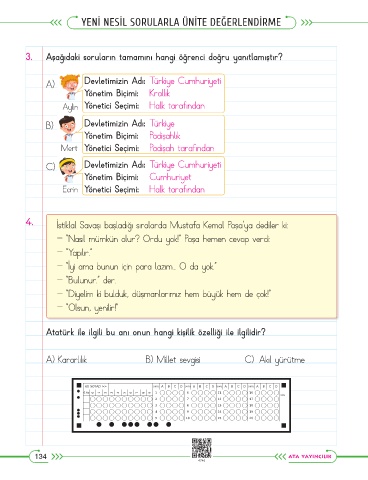 YENİ NESİL SORULARLA ÜNİTE DEĞERLENDİRME
3. Aşağıdaki soruların tamamını hangi öğrenci doğru yanıtlamıştır?
A) Devletimizin Adı: Türkiye Cumhuriyeti
Yönetim Biçimi: Krallık
Aylin Yönetici Seçimi: Halk tarafından
B) Devletimizin Adı: Türkiye
Yönetim Biçimi: Padişahlık
Mert Yönetici Seçimi: Padişah tarafından
C) Devletimizin Adı: Türkiye Cumhuriyeti
Yönetim Biçimi: Cumhuriyet
Ecrin Yönetici Seçimi: Halk tarafından
4. İstiklal Savaşı başladığı sıralarda Mustafa Kemal Paşa'ya dediler ki:
– "Nasıl mümkün olur? Ordu yok!" Paşa hemen cevap verdi:
– "Yapılır."
– "İyi ama bunun için para lazım... O da yok."
– "Bulunur." der.
– "Diyelim ki bulduk, düşmanlarımız hem büyük hem de çok!"
– "Olsun, yenilir!"
Atatürk ile ilgili bu anı onun hangi kişilik özelliği ile ilgilidir?
A) Kararlılık B) Millet sevgisi C) Akıl yürütme
134
ATA YAYINCILIK